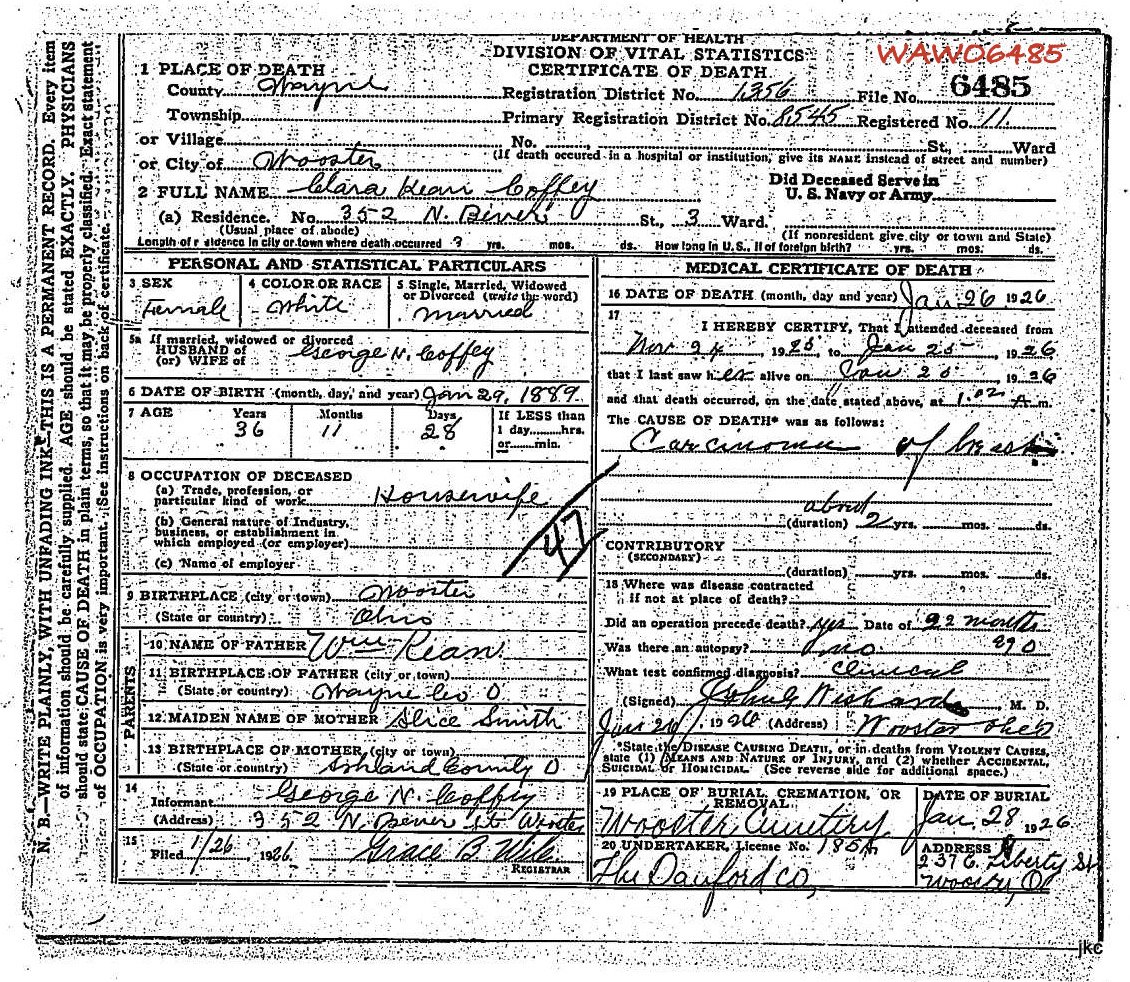 DEPARTMENT OF HEALTH
DIVISION OF VITAL STATISTICS
CERTIFICATE OF DEATH
WAWO6485
1 PLACE OF DEATH
County Wayne Registration District No. 1356 File No. 6485
Township Primary Registration District No. 8545 Registered No. 11
or Village No. , St., Ward
or City of Wooster (If death occured in a hospital or institution, give its NAME instead of street and number)
2 FULL NAME Clara Kean Coffey Did Deceased Serve in U. S. Navy or Army
(a) Residence. No. 352 N. Bever St., 3 Ward.
(Usual place of abode) (If nonresident give city or town and State)
Length of residence in city or town where death occurred 3 yrs. mos. ds. How long in U. S., if of foreign birth? yrs. mos. ds.
PERSONAL AND STATISTICAL PARTICULARS
3 SEX Female
4 COLOR OR RACE White
5 Single, Married, Widowed or Divorced (write the word) Married
5a If married, widowed or divorced
HUSBAND of
(or) WIFE of George N. Coffey
6 DATE OF BIRTH (month, day, and year) Jan 29, 1889.
7 AGE Years 36 Months 11 Days 28 If LESS than 1 day hrs. or min.
8 OCCUPATION OF DECEASED
(a) Trade, profession, or particular kind of work Housewife
(b) General nature of Industry, business, or establishment in which employed (or employer)
(c) Name of employer
47
9 BIRTHPLACE (city or town) Wooster
(State or country) Ohio
PARENTS
10 NAME OF FATHER Wm Kean
11 BIRTHPLACE OF FATHER (city or town)
(State or country) Wayne Co O
12 MAIDEN NAME OF MOTHER Alice Smith
13 BIRTHPLACE OF MOTHER (city or town)
(State or country) Ashland County O
14 Informant George N. Coffey
(Address) 352 N. Bever St. Wooster
15 Filed 1/26, 1926. Grace B.
REGISTRAR
MEDICAL CERTIFICATE OF DEATH
16 DATE OF DEATH (month, day and year) Jan 26 1926
17
I HEREBY CERTIFY, That I attended deceased from
Nov 24, 1925, to Jan 25, 1926
that I last saw her alive on Jan 25, 1926
and that death occurred, on the date stated above, at 1.02 A m.
The CAUSE OF DEATH* was as follows:
Carcinoma of breast
about
(duration) 2 yrs. mos. ds.
CONTRIBUTORY
(SECONDARY)
(duration) yrs. mos. ds.
18 Where was disease contracted
if not at place of death?
Did an operation precede death? yes Date of 22 months
Was there an autopsy? no
What test confirmed diagnosis? Clinical
(Signed) , M. D.
Jan 26, 1926 (Address) Wooster Ohio
*State the DISEASE CAUSING DEATH, or in deaths from VIOLENT CAUSES,
state (1) MEANS AND NATURE OF INJURY, and (2) whether ACCIDENTAL,
SUICIDAL or HOMICIDAL. (See reverse side for additional space.)
19 PLACE OF BURIAL, CREMATION, OR REMOVAL
Wooster Cemetery
DATE OF BURIAL
Jan. 28 1926
20 UNDERTAKER, License No. 185A
The Danford Co,
ADDRESS
237 E. Liberty St
Wooster, O
N. B.—WRITE PLAINLY, WITH UNFADING INK—THIS IS A PERMANENT RECORD. Every item
of information should be carefully supplied. AGE should be stated EXACTLY. PHYSICIANS
should state CAUSE OF DEATH in plain terms, so that it may be properly classified. Exact statement
of OCCUPATION is very important. See instructions on back of certificate.
jkc